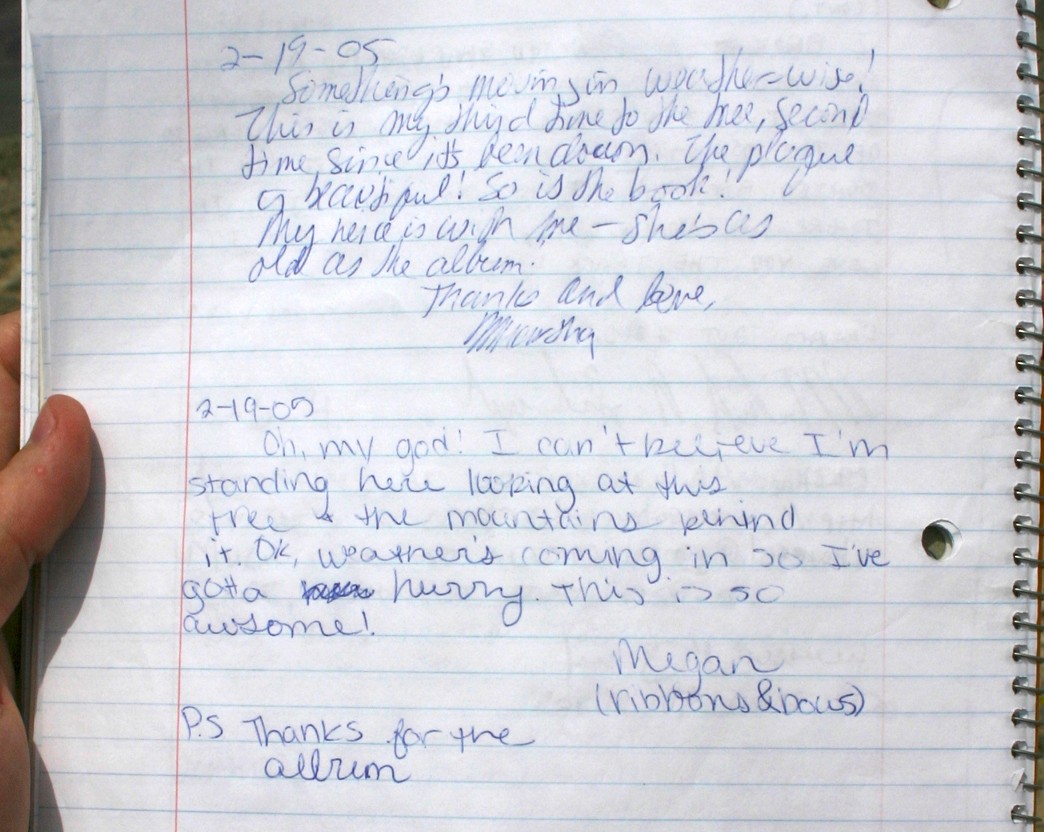 2-19-05
Something's moving in weather-wise!
This is my third time to the tree, second
time since it's been down. The plaque
is beautiful! So is the book!
My neice is with me - She's as
old as the album.
Thanks and love,
Marsha
2-19-05
Oh, my god! I can't believe I'm
standing here looking at this
tree & the mountains behind
it. Ok, weather's coming in so I've
gotta hurry. This is so
awsome!
Megan
(ribbons&bows)
P.S Thanks for the
album